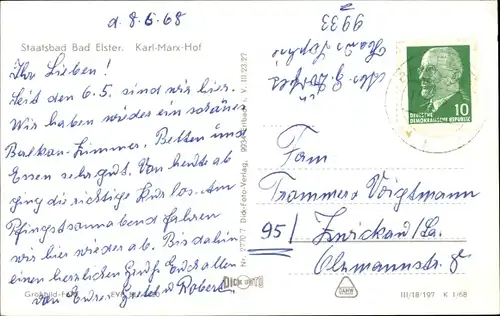 d. 8.5.68
Staatsbad Bad Elster. Karl-Marx-Hof
Ihr Lieben!
Seit den 6.5. sind wir hier.
Wir haben wieder ein schönes
Balkon-Zimmer, Betten und
Essen sehr gut. Von heute ab
ging die richtige Kur los. Am
Pfingstsonnabend fahren
wir hier wieder ab. Bis dahin
einen herzlichen Gruß Euch allen
von Eurer Gretel u Robert.
Großbild-
9933
Nr. 2770/7 Dick-Foto-Verlag, 9934 Erlbach i. V. III 23 27
DICK FOTO
DEUTSCHE
DEMOKRATISCHE REPUBLIK
10
Fam
Trammer + Voigtmann
95/ Zwickau/Sa.
Ohmannstr. 8
III/18/197 K 1/68